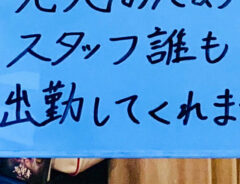 スタッフ誰も
出勤してくれま